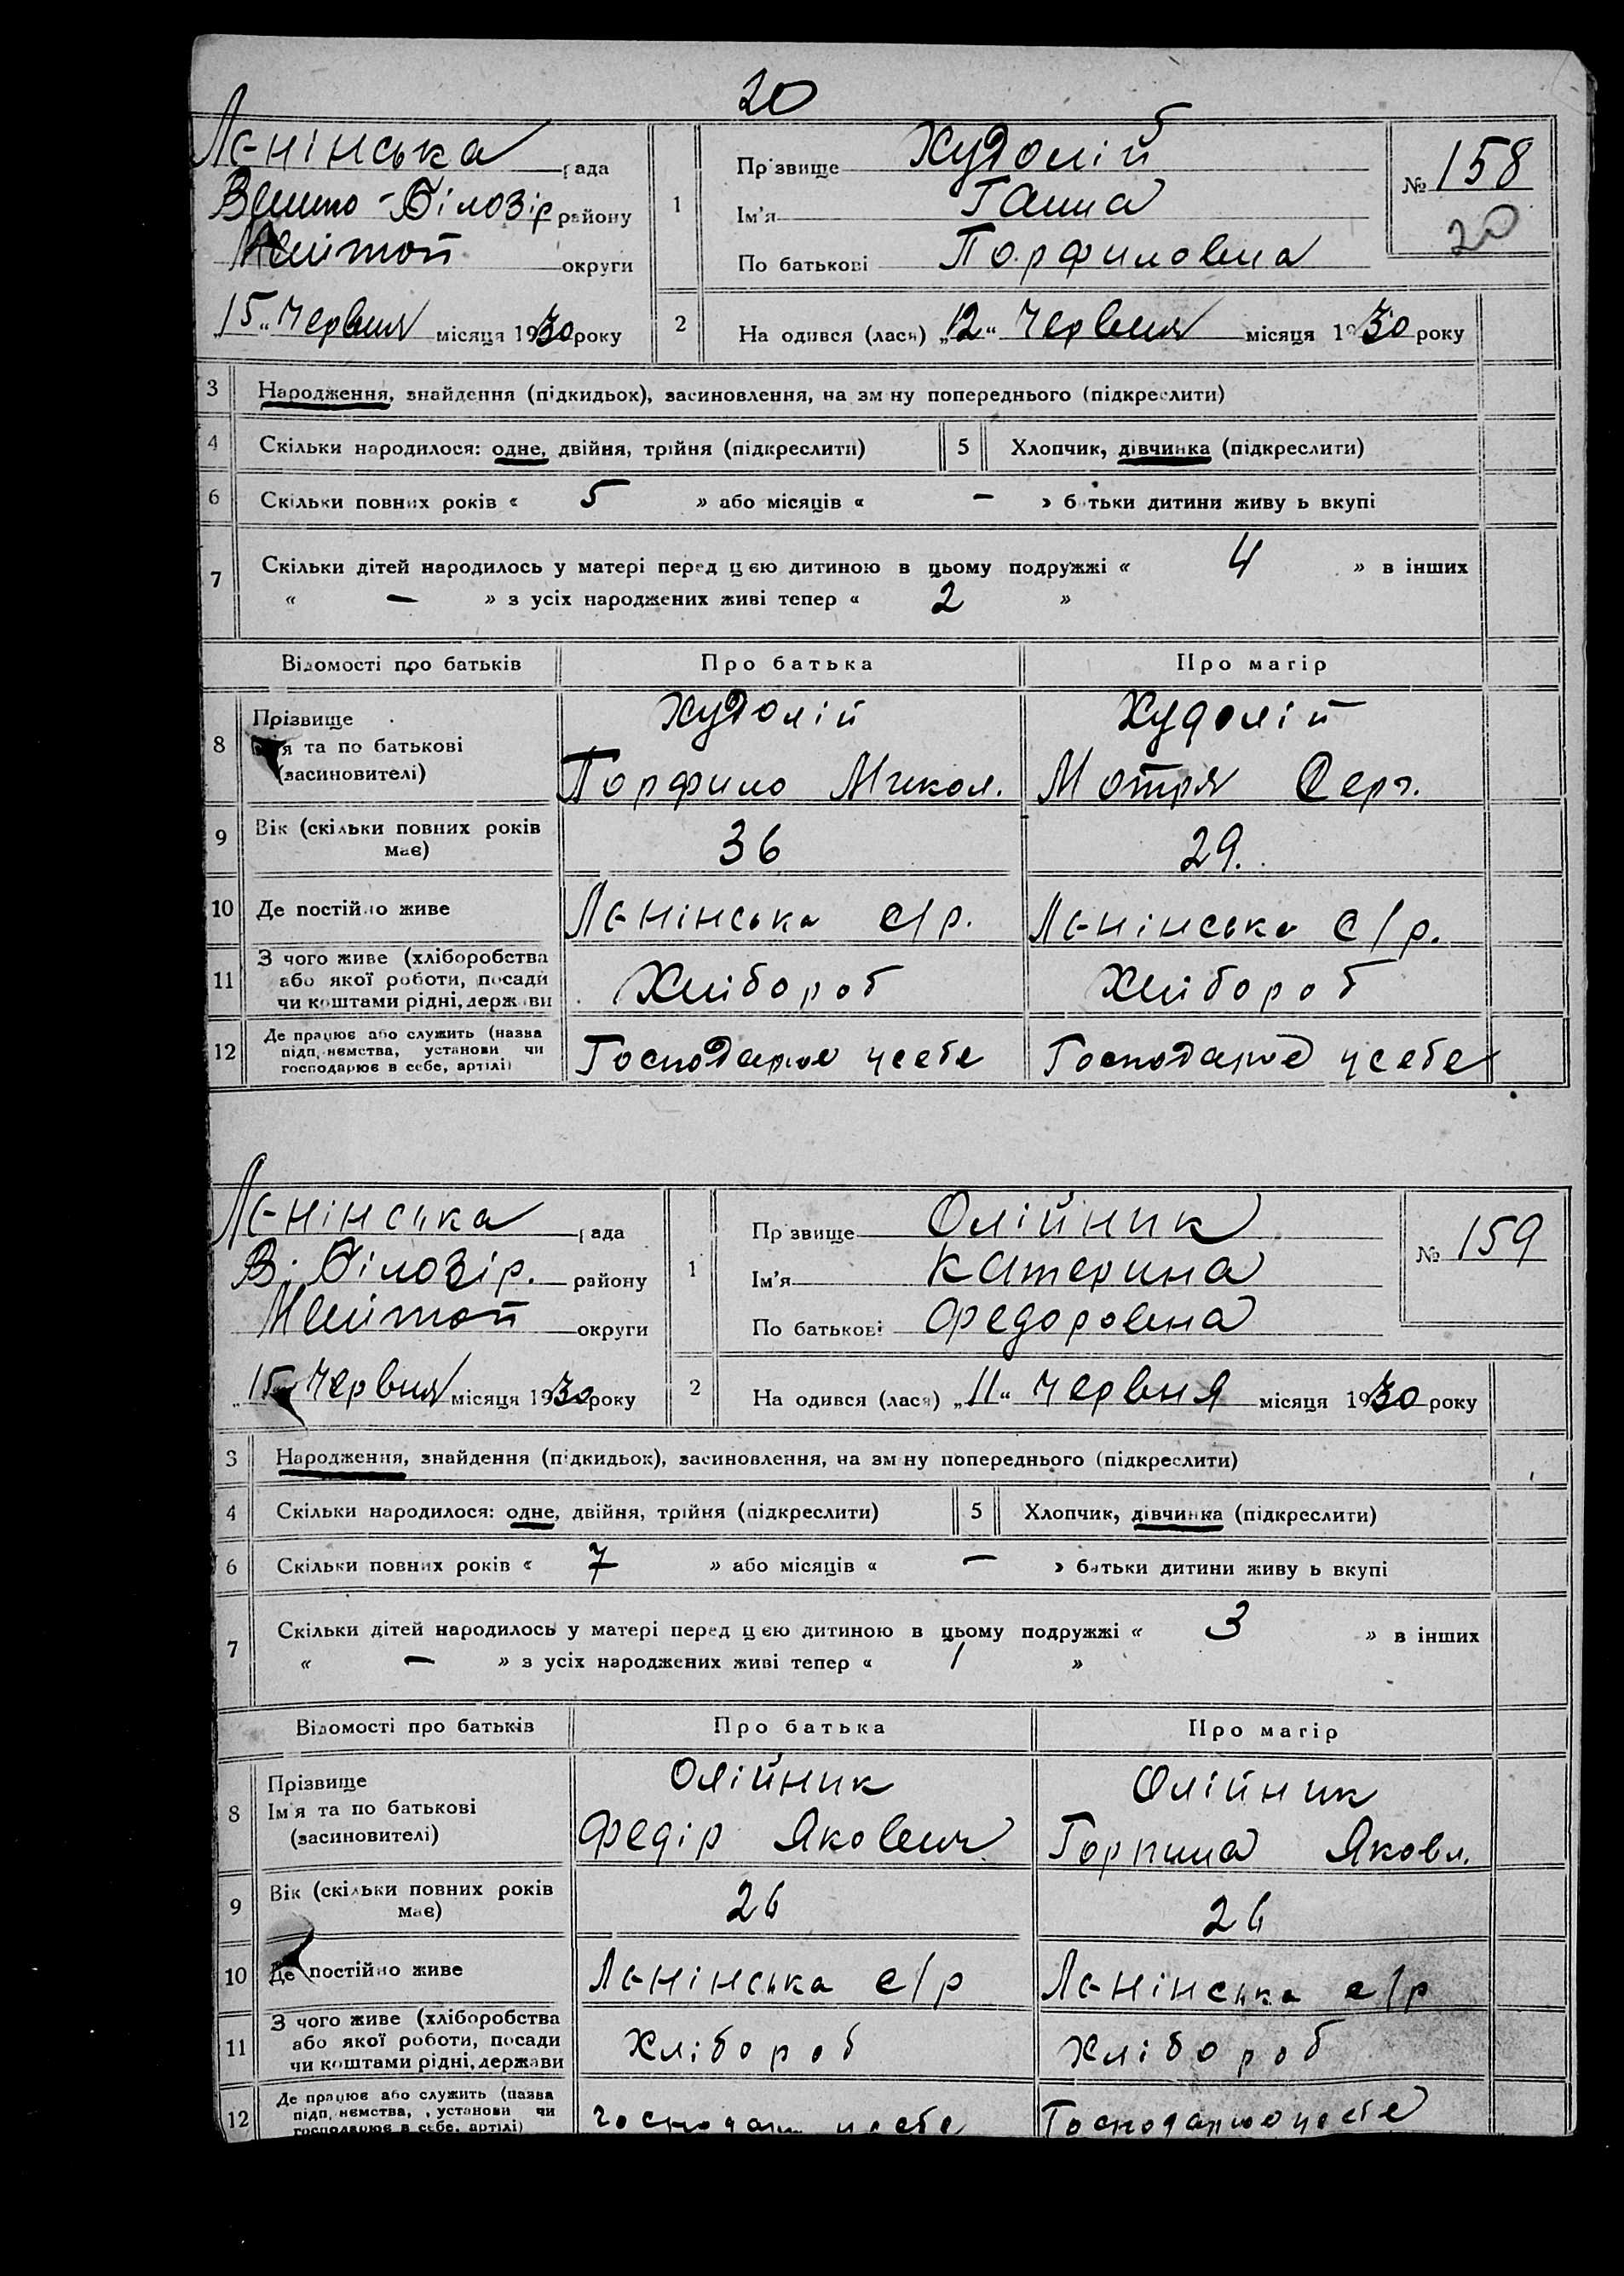 20
Лєнінська рада
Велико-Білозір району
Мелітоп округи
„15“ Червня місяця 1930 року
1
Прізвище Худолій
Ім'я Ганна
По батькові Порфиловна
№ 158
20
2
На одився (лася) „12“ Червня місяця 1930 року
3 Народження, знайдення (підкидьок), засиновлення, на зм ну попереднього (підкреслити)
4 Скільки народилося: одне, двійня, трійня (підкреслити) 5 Хлопчик, дівчинка (підкреслити)
6 Скільки повних років « 5 » або місяців « — » батьки дитини живу ь вкупі
7 Скільки дітей народилось у матері перед цією дитиною в цьому подружжі « 4 » в інших
« — » з усіх народжених живі тепер « 2 »
Відомості про батьків Про батька Про матір
8 Прізвище
я та по батькові
(засиновителі)
Худолій
Порфило Микол.
Худолій
Мотря Серг.
9 Вік (скільки повних років
має)
36
29.
10 Де постійно живе Лєнінська с/р. Лєнінська с/р.
11 З чого живе (хліборобства
або якої роботи, посади
чи коштами рідні, держави
Хлібороб
Хлібороб
12 Де працює або служить (назва
підп, иємства, установи чи
господарює в себе, артілі)
Господарює усебе
Господарює усебе
Лєнінська рада
В. Білозір. району
Мелітоп округи
„15“ Червня місяця 1930 року
1
Прізвище Олійник
Ім'я Катерина
По батькові Федоровна
№ 159
2
На одився (лася) „11“ Червня місяця 1930 року
3 Народження, знайдення (підкидьок), засиновлення, на зм ну попереднього (підкреслити)
4 Скільки народилося: одне, двійня, трійня (підкреслити) 5 Хлопчик, дівчинка (підкреслити)
6 Скільки повних років « 7 » або місяців « — » батьки дитини живу ь вкупі
7 Скільки дітей народилось у матері перед цією дитиною в цьому подружжі « 3 » в інших
« — » з усіх народжених живі тепер « 1 »
Відомості про батьків Про батька Про матір
8 Прізвище
Ім'я та по батькові
(засиновителі)
Олійник
Федір Якович
Олійник
Горпина Яковл.
9 Вік (скільки повних років
має)
26
26
10 Де постійно живе Лєнінська с/р Лєнінська с/р
11 З чого живе (хліборобства
або якої роботи, посади
чи коштами рідні, держави
Хлібороб
Хлібороб
12 Де працює або служить (назва
підп, иємства, установи чи
господарює в себе, артілі)
Господарює усебе